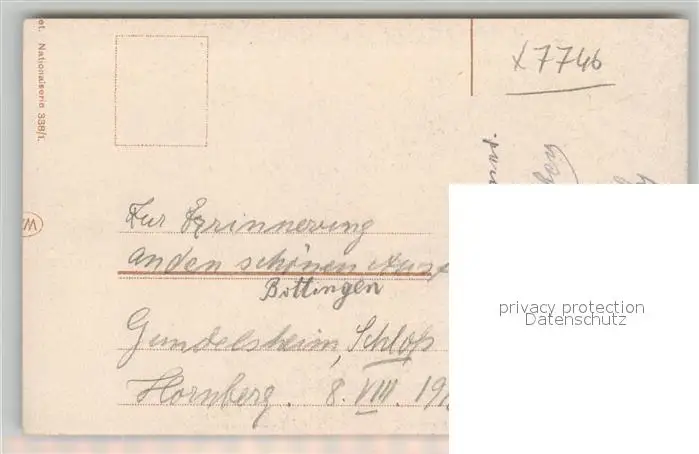 et. Nationalserie 338/1.
x7746
Zur Erinnerung
an den schönen Ausf
Böttingen
Gundelsheim, Schloß
Hornberg. 8. VIII. 191
privacy protection
Datenschutz